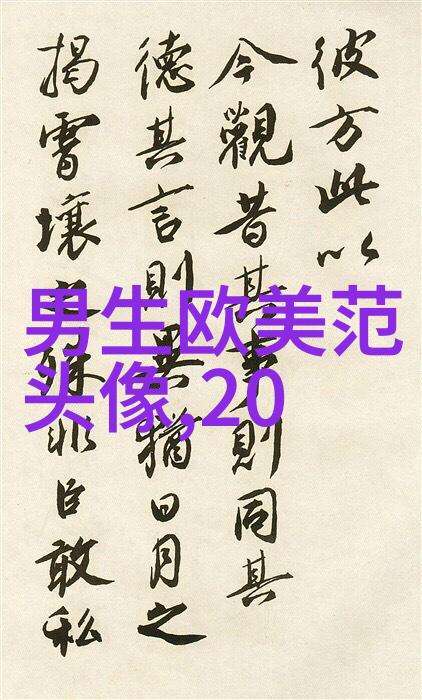 彼方此以
今觀昔其事則同其
德其言則異猶日月之
揭霄壤之殊非臣敢私
男生欧美范
头像,20